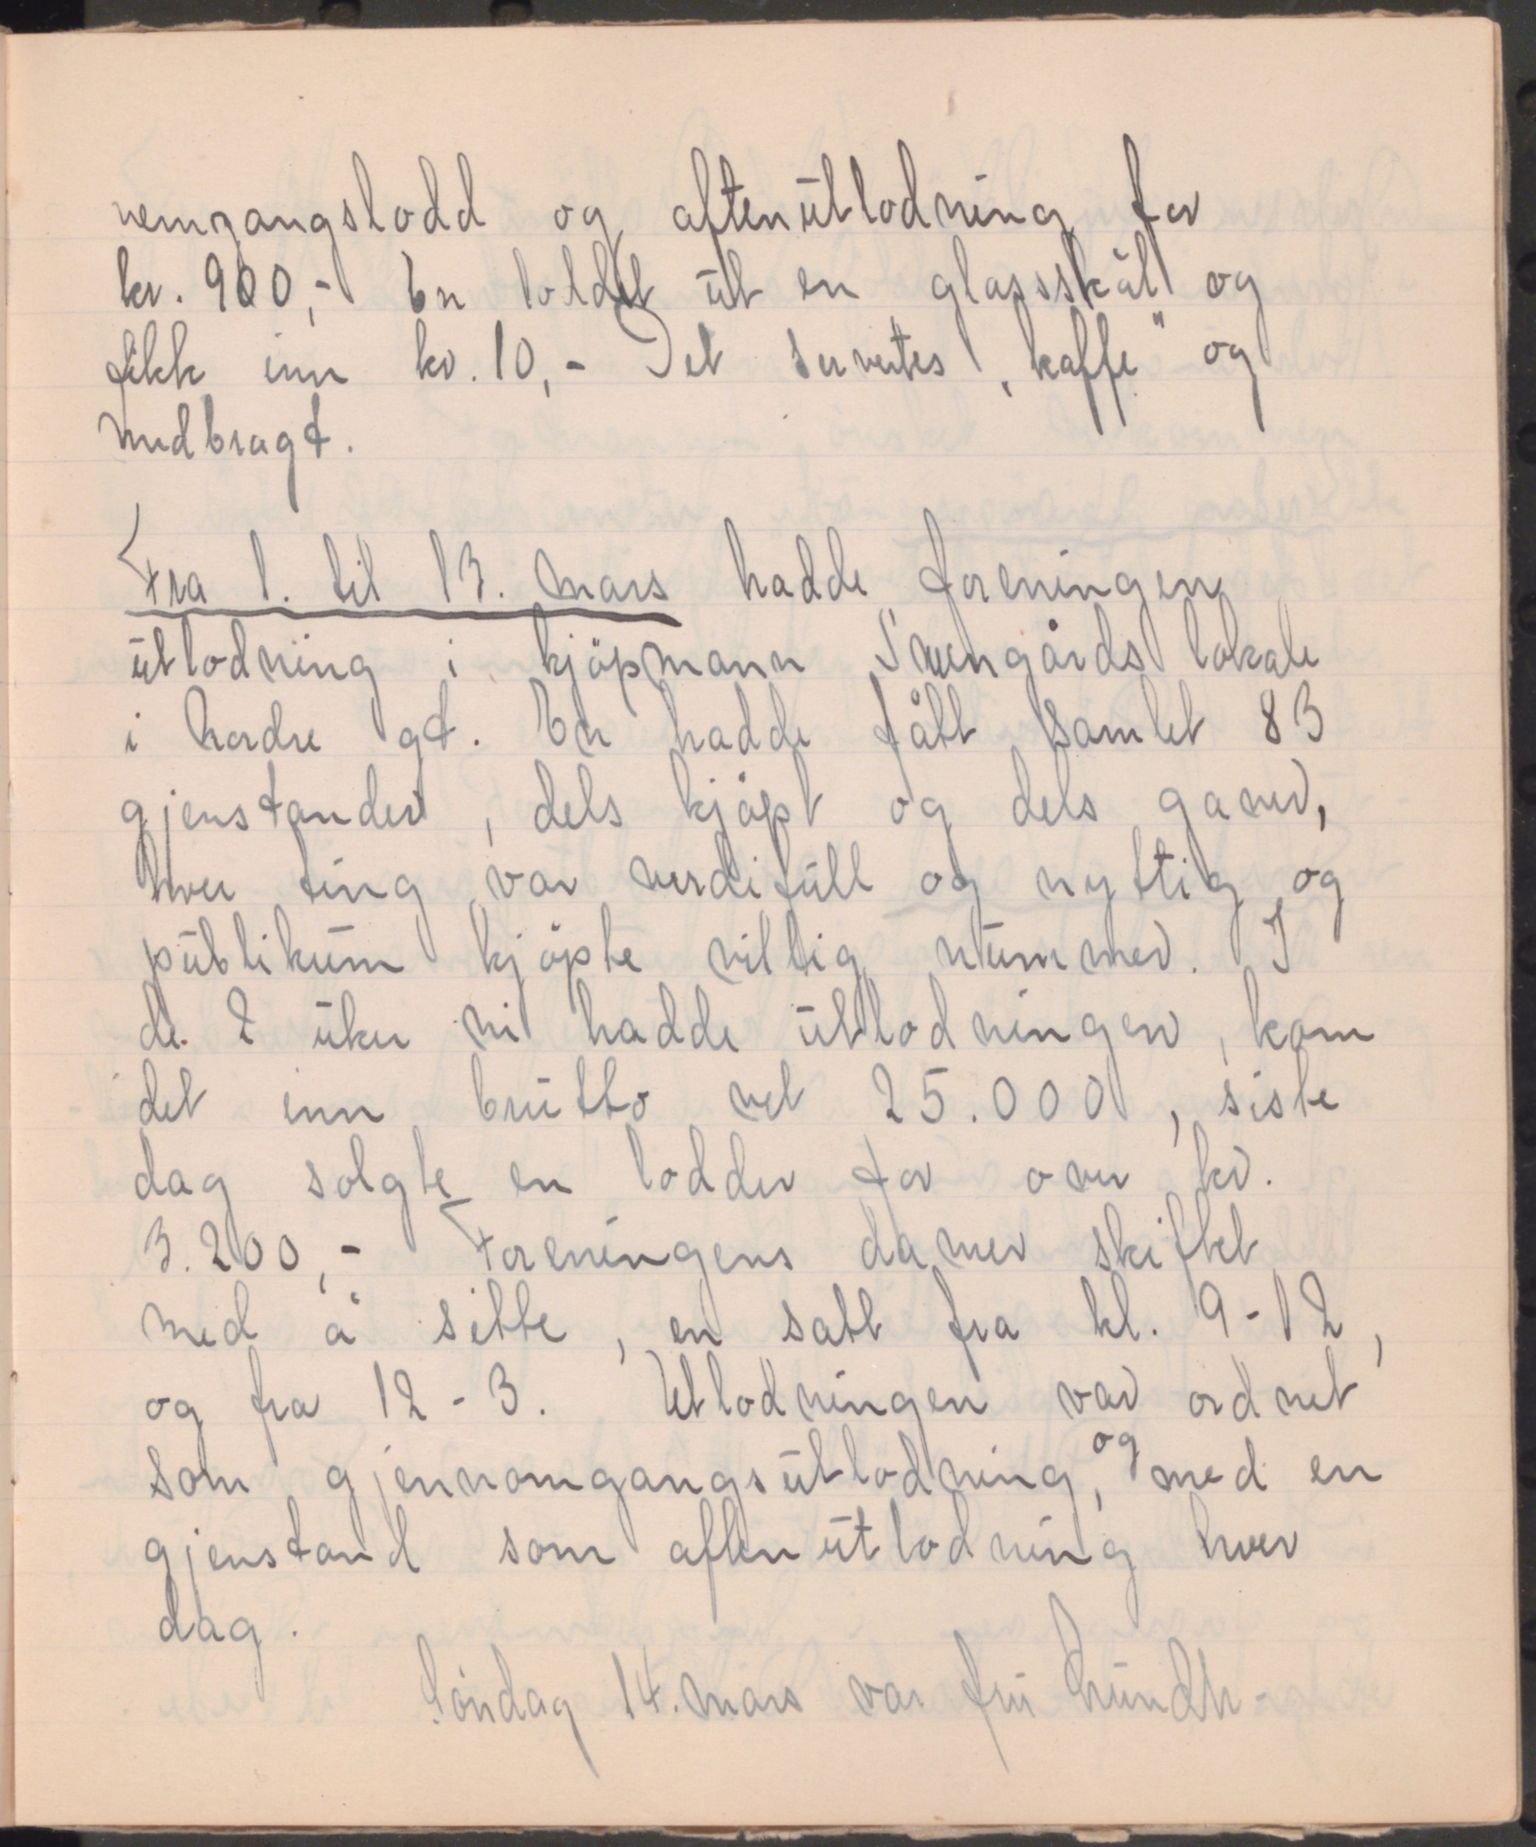 nemgangslodd og aftenutlodning for
kr. 900,- En loddet ut en glassskål og
fikk inn kr. 10,- Det servertes „kaffe" og
medbragt.
Fra 1. til 13. mars hadde foreningen
utlodning i kjöpmann Svengårds lokale
i Nordre gt. En hadde fått samlet 83
gjenstander, dels kjöpt og dels gaver,
hver ting var verdifull og nyttig og
publikum kjöpte villig nummer. I
de 2 uker vi hadde utlodningen, kom
det inn brutto vel 25.000, siste
dag solgte en lodder for over kr.
3.200,- Foreningens damer skiftet
med å sitte, en satt fra kl. 9-12,
og fra 12-3. Utlodningen var ordnet
som gjennomgangsutlodning, og med en
gjenstand som aftenutlodning hver
dag.
Söndag 14. mars var fru